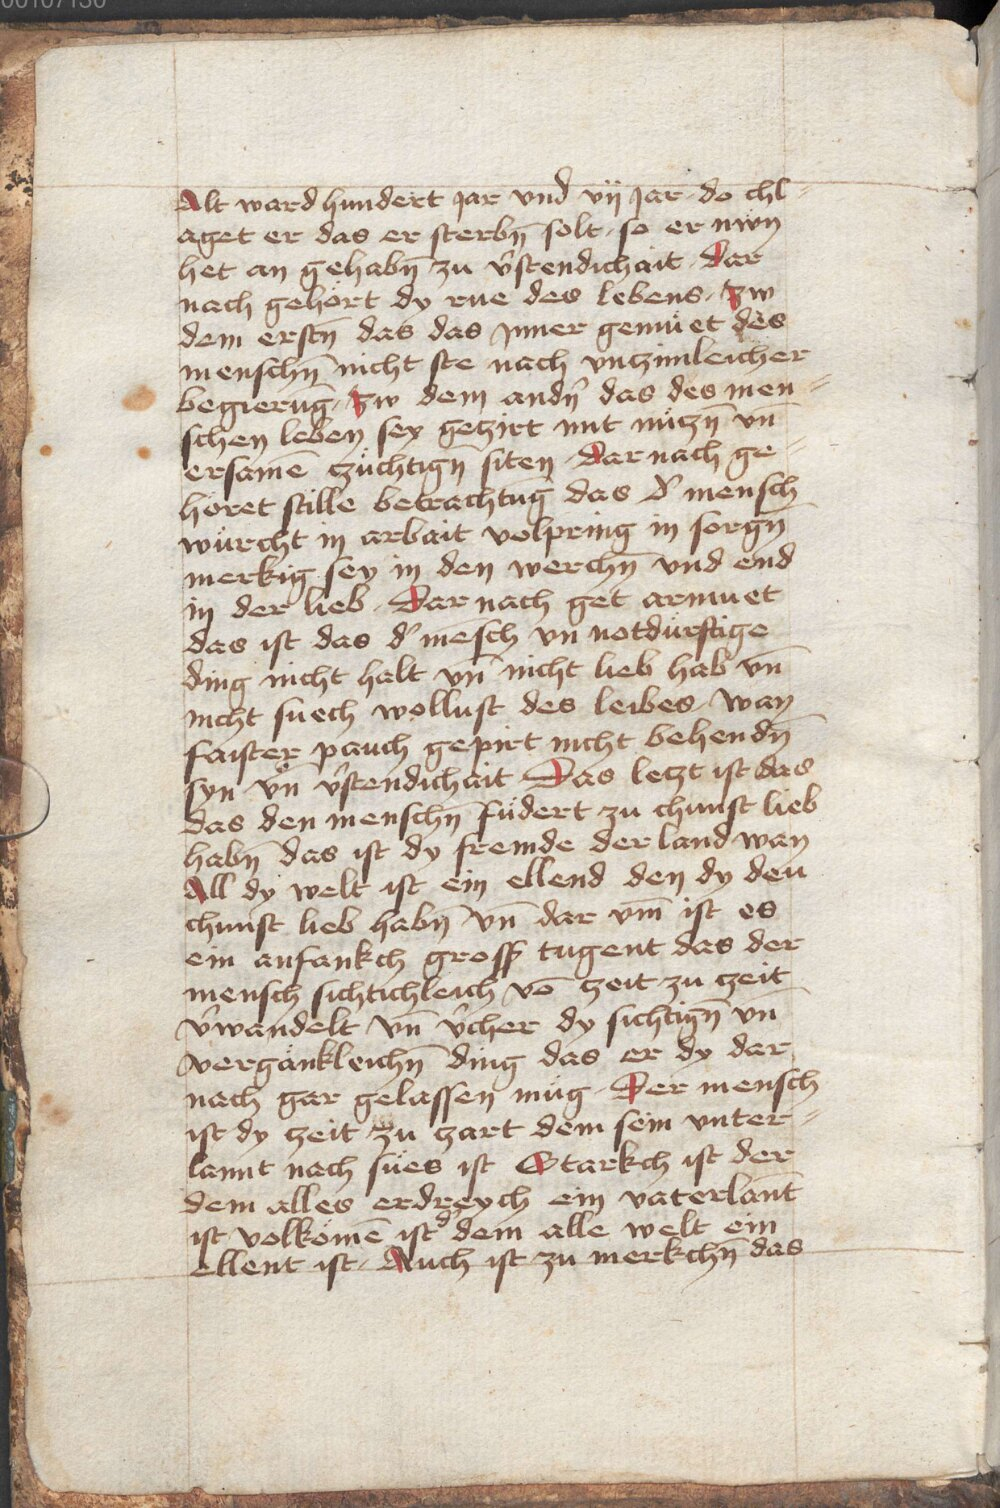 00107130
Alt ward hundert jar vnd vij jar do chl-
aget er das er sterbn̄ solt so er nwn
het an gehabn̄ zu v̾stendichait Dar
nach gehört dy rue des lebens Zw
dem erstn̄ das das jnner gemüet des
menschn̄ nicht ste nach vnzimleicher
begierūg Zw dem andn̾ das des men-
schen leben sey gezirt mit nüczn̄ vn̄
ersamē czüchtign̄ siten Dar nach ge-
höret stille betrachtūg das d̾ mensch
würcht in arbait volpring in sorgn̄
merkig sey in den werchn̄ vnd end
in der lieb Dar nach get armuet
das ist das d̾ mēsch vn notdürftige
ding nicht halt vn̄ nicht lieb hab vn̄
nicht suech wollust des leibes wan
faister pauch gepirt nicht behendn̄
syn vn̄ v̾stendichait Das leczt ist das
das den menschn̄ füdert zu chunst lieb
habn̄ das ist dy fremde der land wan
All dy welt ist ein ellend den dy den
chunst lieb habn̄ vn̄ dar vm̄ ist es
ein anfankch gross tugent das der
mensch sichtichleich vō czeit zu czeit
v̾wandelt vn̄ v̾cher dy sichtign̄ vn̄
vergänkleichn̄ ding das er dy dar
nach gar gelassen müg Der mensch
ist dy czeit zu czart dem sein vnter-
lannt nach sües ist Starkch ist der
dem alles erdreych ein vaterlant
ist volkömē ist d̾ dem alle welt ein
ellent ist Auch ist zu merkchn̄ das